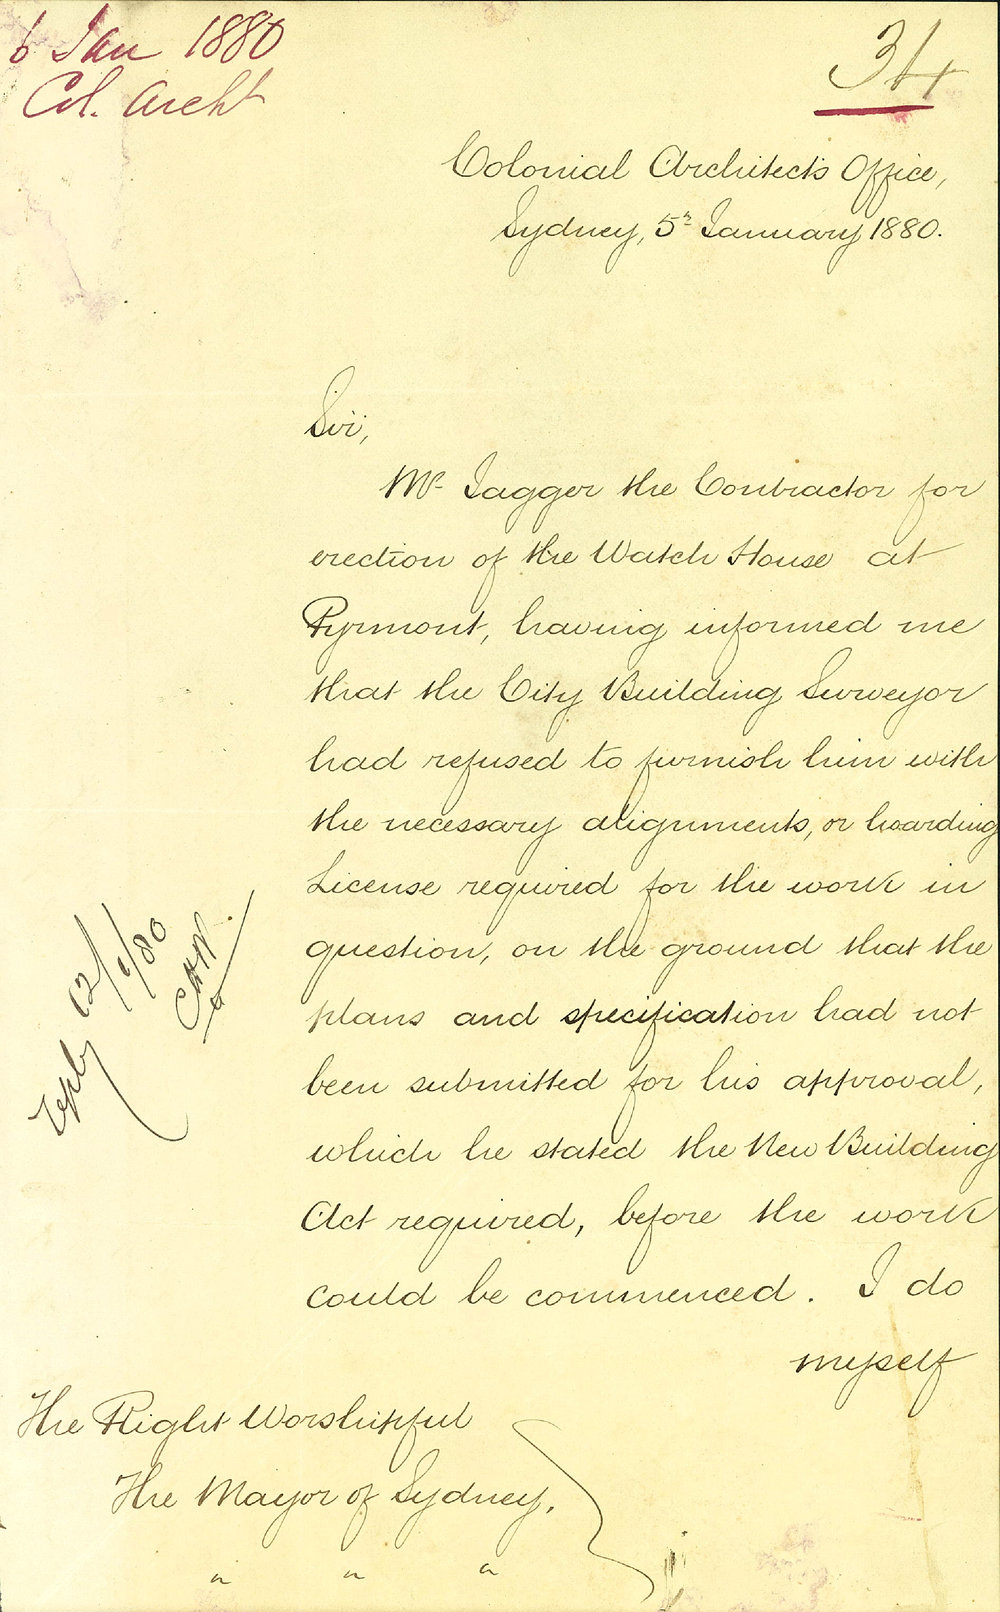 6 Jan 1880
Col. Archt
34
Colonial Architect's Office,
Sydney, 5th January 1880.
Sir,
Mr Jagger the Contractor for
erection of the Watch House at
Pyrmont, having informed me
that the City Building Surveyor
had refused to furnish him with
the necessary alignments, or hoarding
License required for the work in
question, on the ground that the
plans and specification had not
been submitted for his approval,
which he stated the New Building
Act required, before the work
could be commenced. I do
myself
Reply 12/1/80
The Right Worshipful
The Mayor of Sydney.
" " "